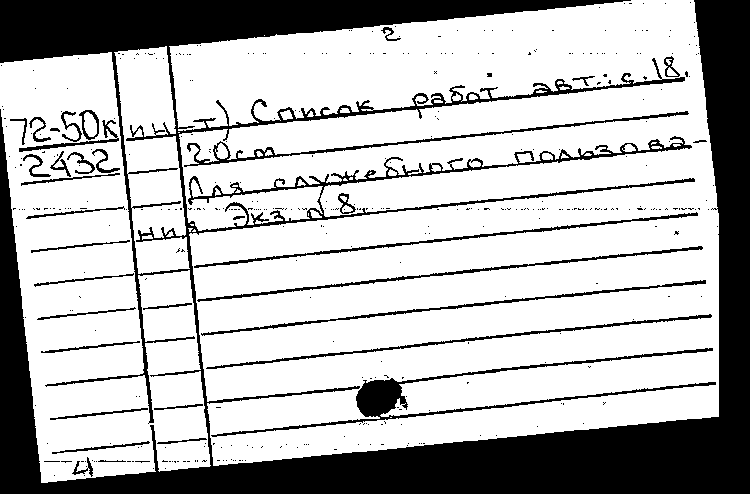 2
72-50к ин-т). Список работ авт.: с. 18.
2432 20см
Для служебного пользова-
ния Экз. № 8.
4